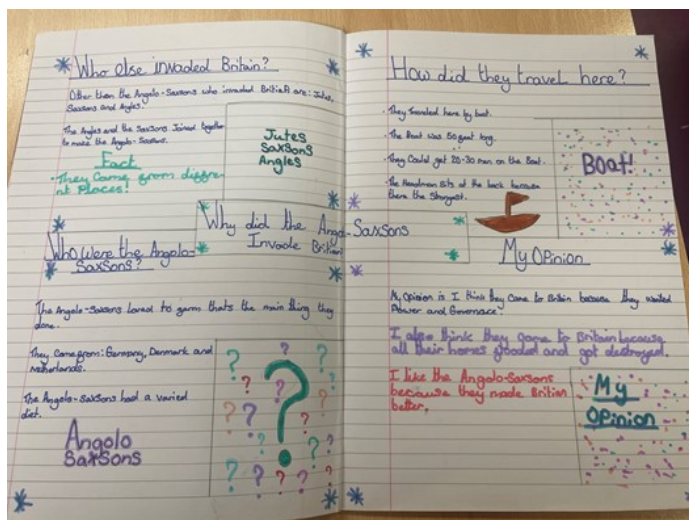 Who else invaded Britain?
Other then the Angolo-Saxsons who invaded Britian are: Jutes,
Saxsons and Angles.
The Angles and the Saxsons Joined together
to make the Angolo-Saxsons.
Fact
• They Came from differe
nt Places!
Jutes
Saxsons
Angles
Why did the Anga-Saxsons
Invade Britian
Who were the Angolo-
Saxsons?
The Angolo-Saxsons Loved to farm thats the main thing they
done.
They Came from: Germany, Denmark and
Netherlands.
The Angolo-Saxsons had a varied
diet.
Angolo
Saxsons
How did they travel here?
• They Traveled here by boat.
• The Boat was 50 feet long.
• They Could get 20-30 men on the Boat.
• The Headman sits at the back because
there the Strongest.
Boat!
My Opinion
My Opinion is I think they Came to Britain because they wanted
Power and Governace.
I also think they came to Britain because
all their homes flooded and got destroyed.
I like the Angolo-Saxsons
because they made Britian
better.
My
Opinion